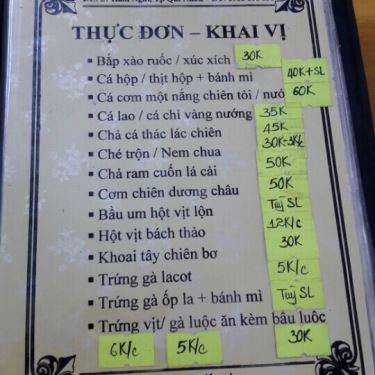 THỰC ĐƠN – KHAI VỊ
Bắp xào ruốc / xúc xích 30K
Cá hộp / thịt hộp + bánh mì 40K+SL
Cá cơm một nắng chiên tỏi / nướ 60K
Cá lao / cá chỉ vàng nướng 35K
Chả cá thác lác chiên 45K
Ché trộn / Nem chua
Chả ram cuốn lá cải 50K
Cơm chiên dương châu 50K
Bầu um hột vịt lộn Tuỳ SL
Hột vịt bách thảo 12K/c
Khoai tây chiên bơ 30K
Trứng gà lacot 5K/c
Trứng gà ốp la + bánh mì Tuỳ SL
Trứng vịt/ gà luộc ăn kèm bầu luộc 30K
6K/c 5K/c